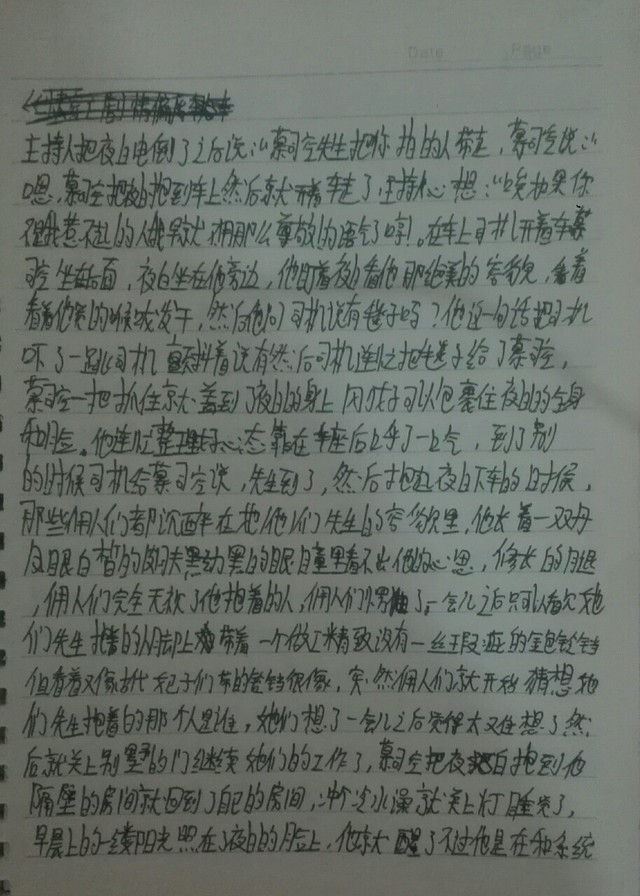 Date Page
主持人把夜白电倒了之后说:"慕司空先生把你拍的人带走,慕司空说:"
嗯,慕司空把夜白抱到车上然后就开着车走了,主持人心想:"唉如果你
不是我惹不起的人我早就不用那么尊敬的语气了哼!。在车上司机开着车慕
司空坐后面,夜白坐在他旁边,他盯着夜白看他那绝美的容貌,看着
看着他突的时候发午,然后他问司机说有毯子吗?他这一句话把司机
吓了一跳司机颤抖着说有然后司机连忙把毯子给了慕司空,
慕司空一把抓住就盖到了夜白的身上因毯子可以包裹住夜白的全身
和脸。他连忙整理好心态靠在车座后上呼了一口气,到了别
的时候司机给慕司空说,先生到了,然后抱起夜白下车的时候,
那些佣人们都沉迷在她们先生的容貌里,他长着一双丹
凤眼白皙的皮肤黑幼黑的眼瞳里看不出他的心思,修长的腿
,佣人们完全无视了他抱着的人,佣人们愣了一会儿之后只可以看见她
们先生抱着的人脚上带着一个做工精致没有一丝瑕疵的金色铃铛
但看着又像古代妃子们带的铃铛很像,突然佣人们就开始猜想她
们先生抱着的那个人是谁,她们想了一会儿之后觉得太又住想了然
后就关上别墅的门继续她们的工作了,慕司空把夜白抱到他
隔壁的房间就回到了自己的房间,冲个冷水澡就关上灯睡觉了,
早晨上的一缕阳光照在了夜白的脸上,他就大醒了不过他是在和系统